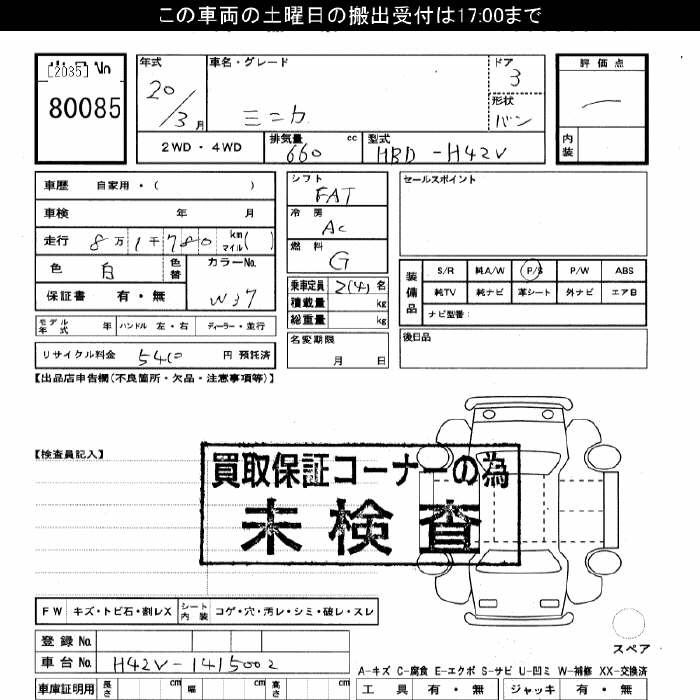 この車両の土曜日の搬出受付は17:00まで
[2035]
80085
年式
20/3月
車名・グレード
ミニカ
ドア
3
形状
バン
評価点
内装
2WD・4WD
排気量 660 cc
型式 HBD-H42V
車歴 自家用・( )
車検 年 月
走行 8万1千780 km マイル( )
色 白 色替
カラーNo. W37
保証書 有・無
モデル年式 年 ハンドル 左・右 ディーラー・並行
リサイクル料金 5410 円 預託済
シフト FAT
冷房 AC
燃料 G
乗車定員 2(4) 名
積載量 kg
総重量 kg
名変期限 月 日
セールスポイント
装備品 S/R 純A/W P/S P/W ABS
純TV 純ナビ 革シート 外ナビ エアB
ナビ型番:
後日品
【出品店申告欄(不良箇所・欠品・注意事項等)】
【検査員記入】
買取保証コーナーの為
未検査
FW キズ・トビ石・割レX シート内装 コゲ・穴・汚レ・シミ・破レ・スレ
スペア
登録No.
車台No. H42V-1415002
A-キズ C-腐食 E-エクボ S-サビ U-凹ミ W-補修 XX-交換済
車庫証明用 長さ cm 幅 cm 高さ cm
工具 有・無 ジャッキ 有・無